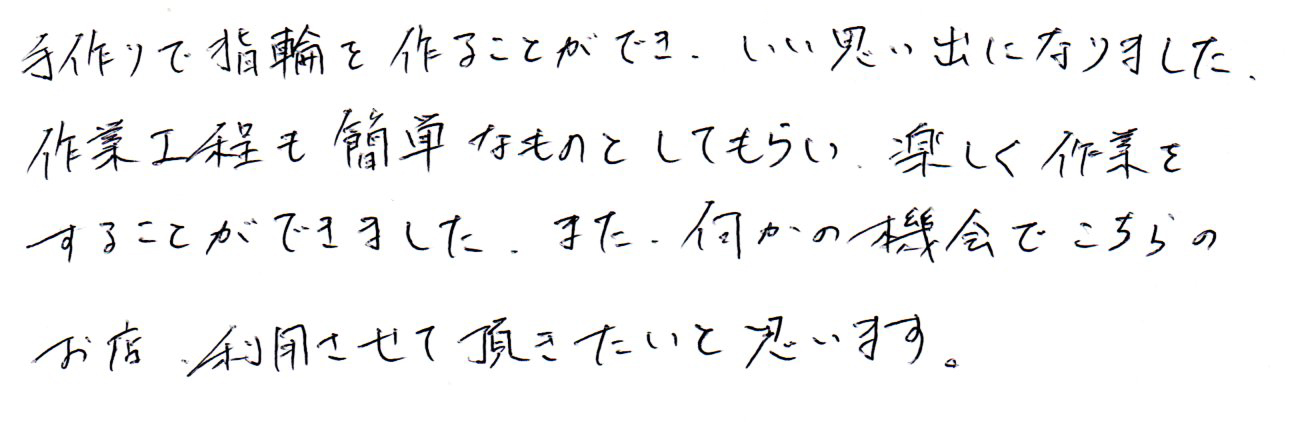 手作りで指輪を作ることができ、いい思い出になりました、
作業工程も簡単なものとしてもらい、楽しく作業を
することができました、また、何かの機会でこちらの
お店、利用させて頂きたいと思います。